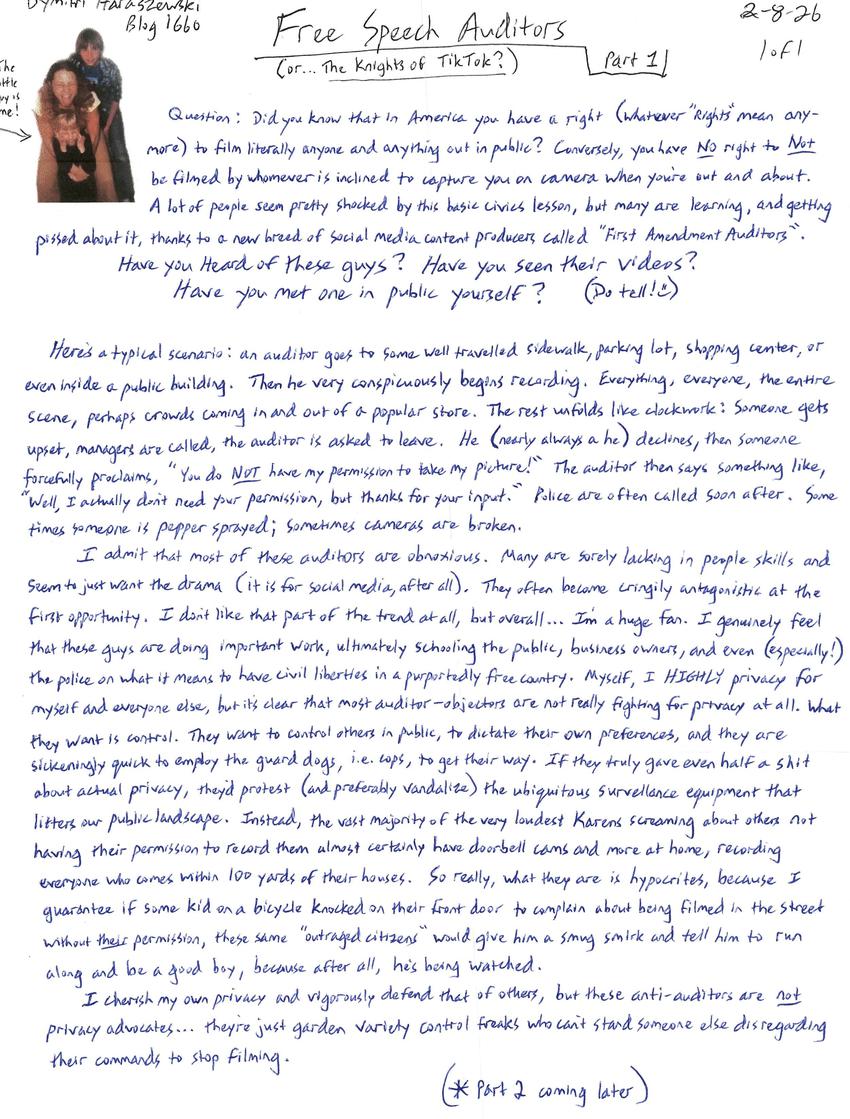 Dymitri Haraszewski
Blog 1660
Free Speech Auditors
(or... The Knights of TikTok?)
Part 1
2-8-26
1 of 1
The
little
guy is
me!
Question: Did you know that in America you have a right (whatever "Rights" mean any-
more) to film literally anyone and anything out in public? Conversely, you have NO right to Not
be filmed by whomever is inclined to capture you on camera when you're out and about.
A lot of people seem pretty shocked by this basic civics lesson, but many are learning, and getting
pissed about it, thanks to a new breed of social media content producers called "First Amendment Auditors".
Have you Heard of these guys? Have you seen their videos?
Have you met one in public yourself? (Do tell! ☺)
Here's a typical scenario: an auditor goes to some well travelled sidewalk, parking lot, shopping center, or
even inside a public building. Then he very conspicuously begins recording. Everything, everyone, the entire
scene, perhaps crowds coming in and out of a popular store. The rest unfolds like clockwork: Someone gets
upset, managers are called, the auditor is asked to leave. He (nearly always a he) declines, then someone
forcefully proclaims, "You do NOT have my permission to take my picture!" The auditor then says something like,
"Well, I actually don't need your permission, but thanks for your input." Police are often called soon after. Some
times someone is pepper sprayed; sometimes cameras are broken.
I admit that most of these auditors are obnoxious. Many are sorely lacking in people skills and
seem to just want the drama (it is for social media, after all). They often become cringily antagonistic at the
first opportunity. I don't like that part of the trend at all, but overall... I'm a huge fan. I genuinely feel
that these guys are doing important work, ultimately schooling the public, business owners, and even (especially!)
the police on what it means to have civil liberties in a purportedly free country. Myself, I HIGHLY privacy for
myself and everyone else, but it's clear that most auditor-objectors are not really fighting for privacy at all. What
they want is control. They want to control others in public, to dictate their own preferences, and they are
sickeningly quick to employ the guard dogs, i.e. cops, to get their way. If they truly gave even half a shit
about actual privacy, they'd protest (and preferably vandalize) the ubiquitous survellance equipment that
litters our public landscape. Instead, the vast majority of the very loudest Karens screaming about others not
having their permission to record them almost certainly have doorbell cams and more at home, recording
everyone who comes within 100 yards of their houses. So really, what they are is hypocrites, because I
guarantee if some kid on a bicycle knocked on their front door to complain about being filmed in the street
without their permission, these same "outraged citizens" would give him a smug smirk and tell him to run
along and be a good boy, because after all, he's being watched.
I cherish my own privacy and vigorously defend that of others, but these anti-auditors are not
privacy advocates... they're just garden variety control freaks who can't stand someone else disregarding
their commands to stop filming.
(* Part 2 coming later)